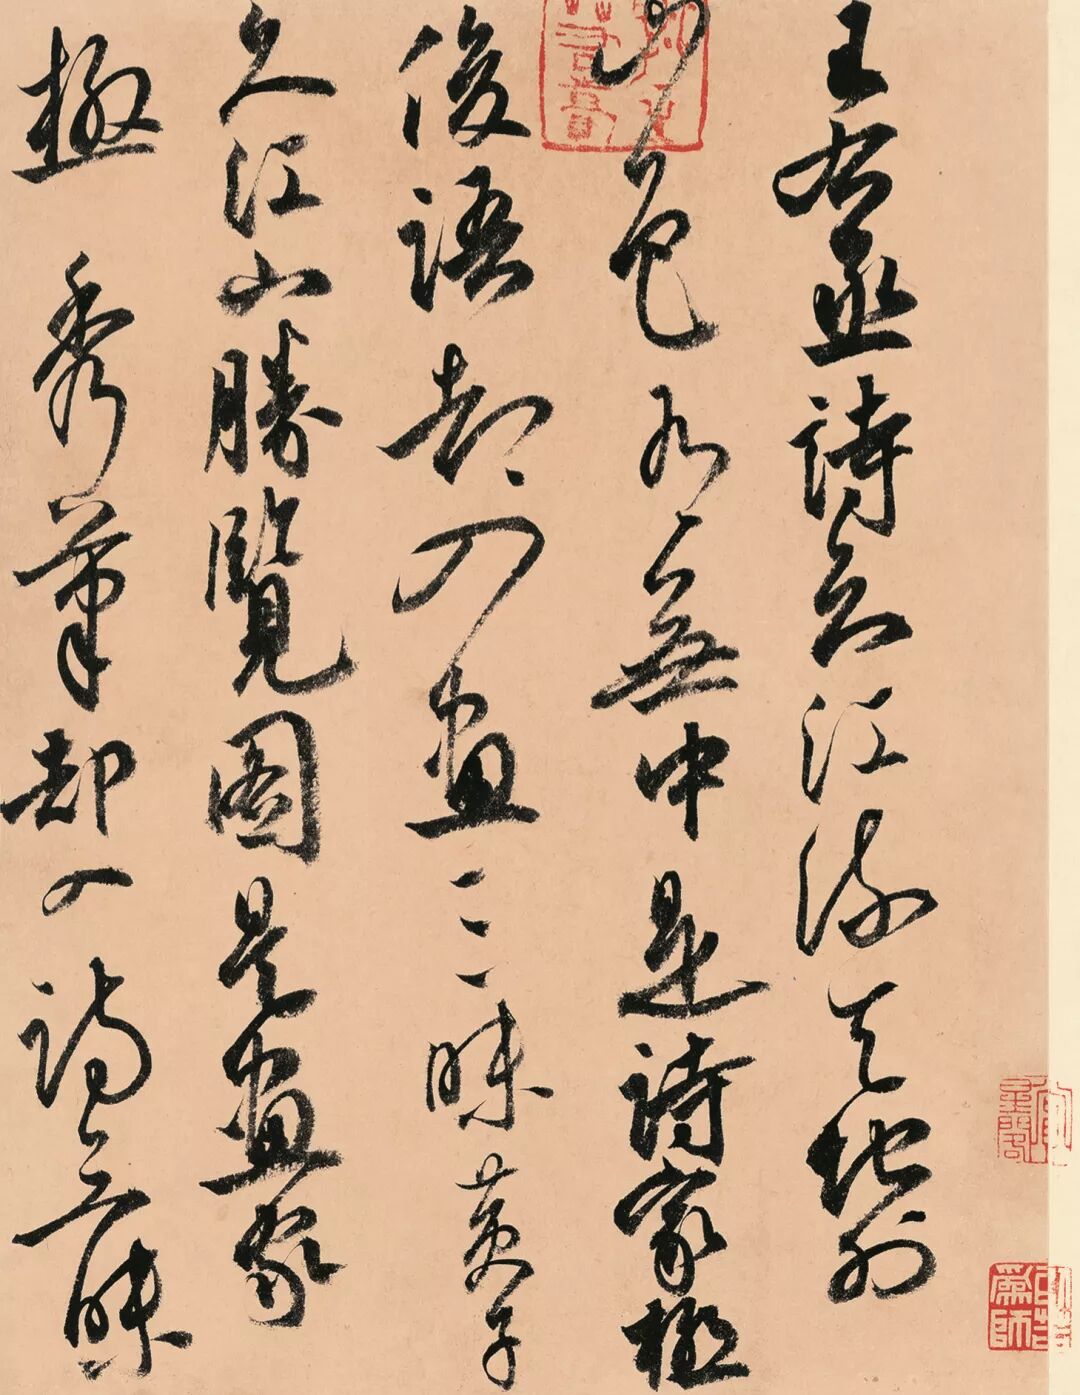 王右丞詩云江流天地外
山色有無中是詩家極
俊語却入畫三昧黃子
久江山勝覽圖是畫家
極秀筆却入詩三昧